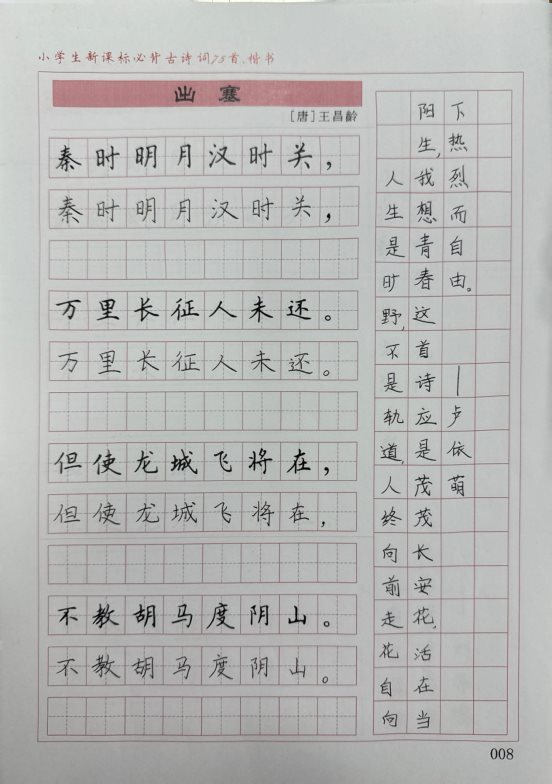 小学生新课标必背古诗词75首.楷书
出塞
[唐]王昌齡
秦时明月汉时关，
秦时明月汉时关，
万里长征人未还。
万里长征人未还。
但使龙城飞将在，
但使龙城飞将在，
不教胡马度阴山。
不教胡马度阴山。
人生是旷野，不是轨道，人终向前走花自向
阳生，我想青春这首诗应是茂茂长安花，活在当
下热烈而自由。
—卢依萌
008